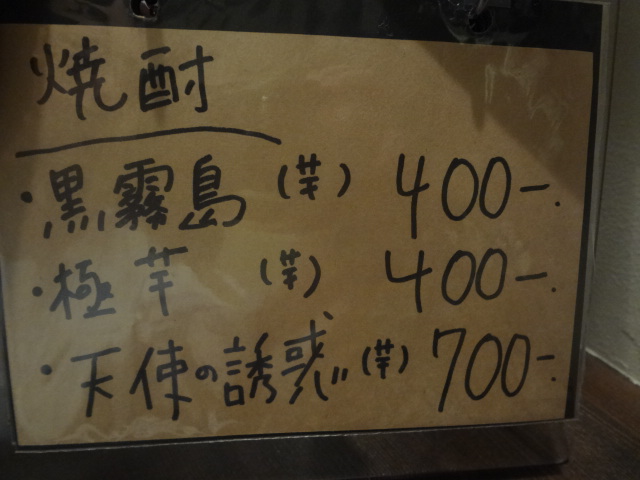 焼酎
・黒霧島 (芋) 400-.
・極芋 (芋) 400-.
・天使の誘惑 (芋) 700-.